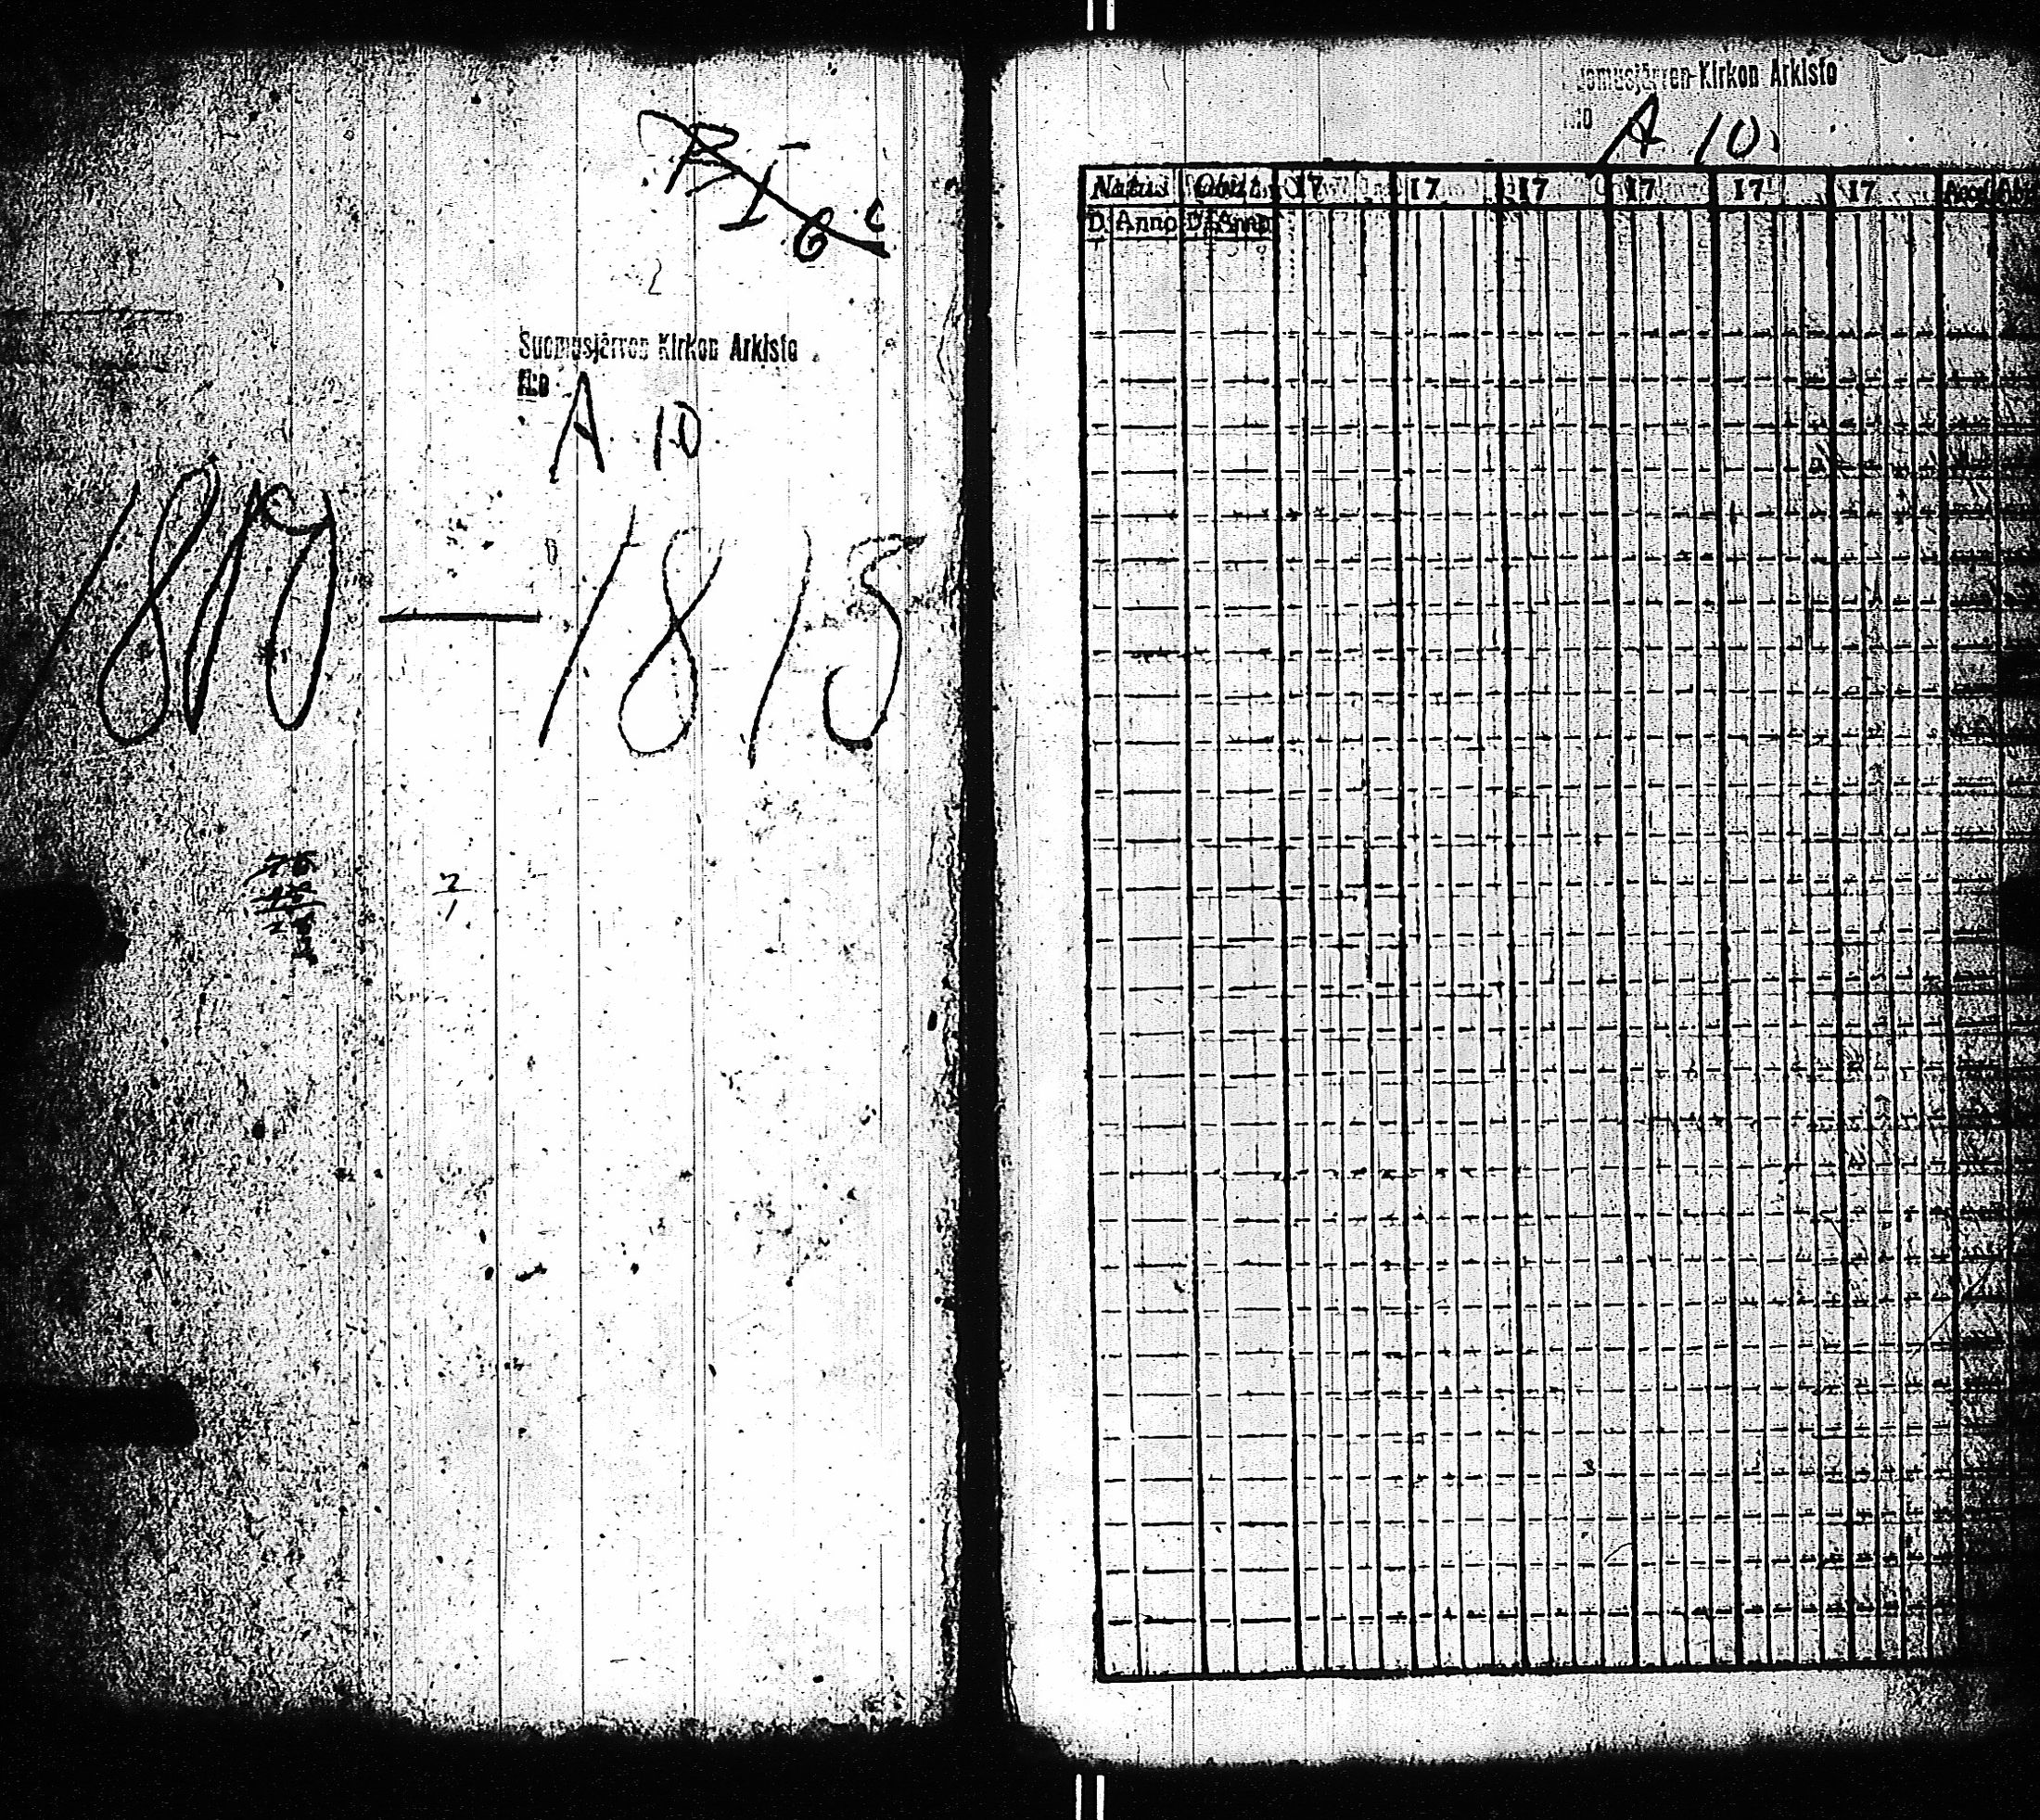 B I 6 c
Suomusjärven Kirkon Arkisto
N:o
A 10
1810 — 1815
2
1
Suomusjärven Kirkon Arkisto
N:o A 10.
Natus Obiit 17 17 17 17 17 17 Acc. Abit
D. Anno D. Anno